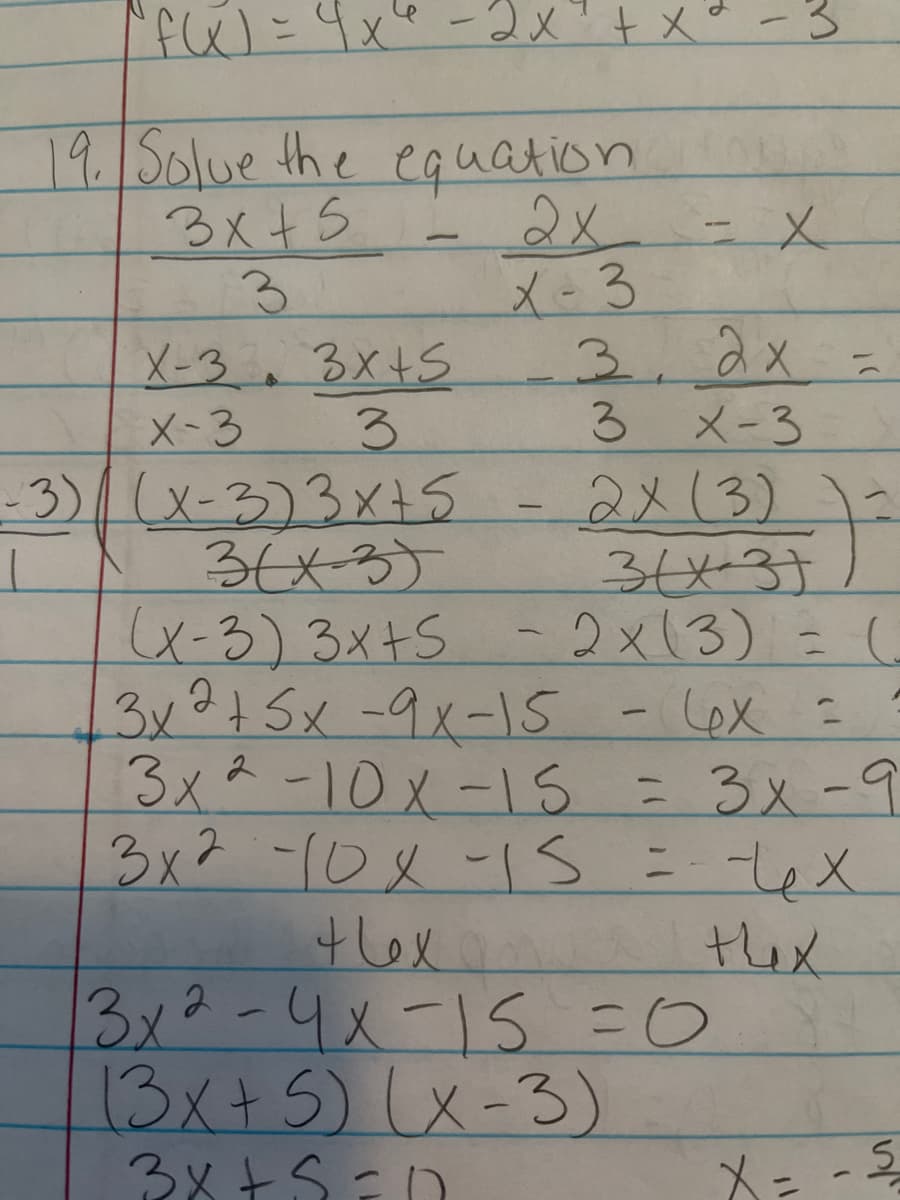 f(x) = 4x⁶ - 2x⁴ + x² - 3
19. Solve the equation
(3x+5)/3 - 2x/(x-3) = x
(x-3)/(x-3) · (3x+5)/3 - 3/3 · 2x/(x-3) =
-3)/1 ( (x-3)3x+5/3(x-3) - 2x(3)/3(x-3) ) =
(x-3)3x+5 - 2x(3) = (
3x²+5x-9x-15 - 6x =
3x²-10x-15 = 3x-9
3x²-10x-15 = -6x
+6x +6x
3x²-4x-15 = 0
(3x+5)(x-3)
3x+5=0 x = -5